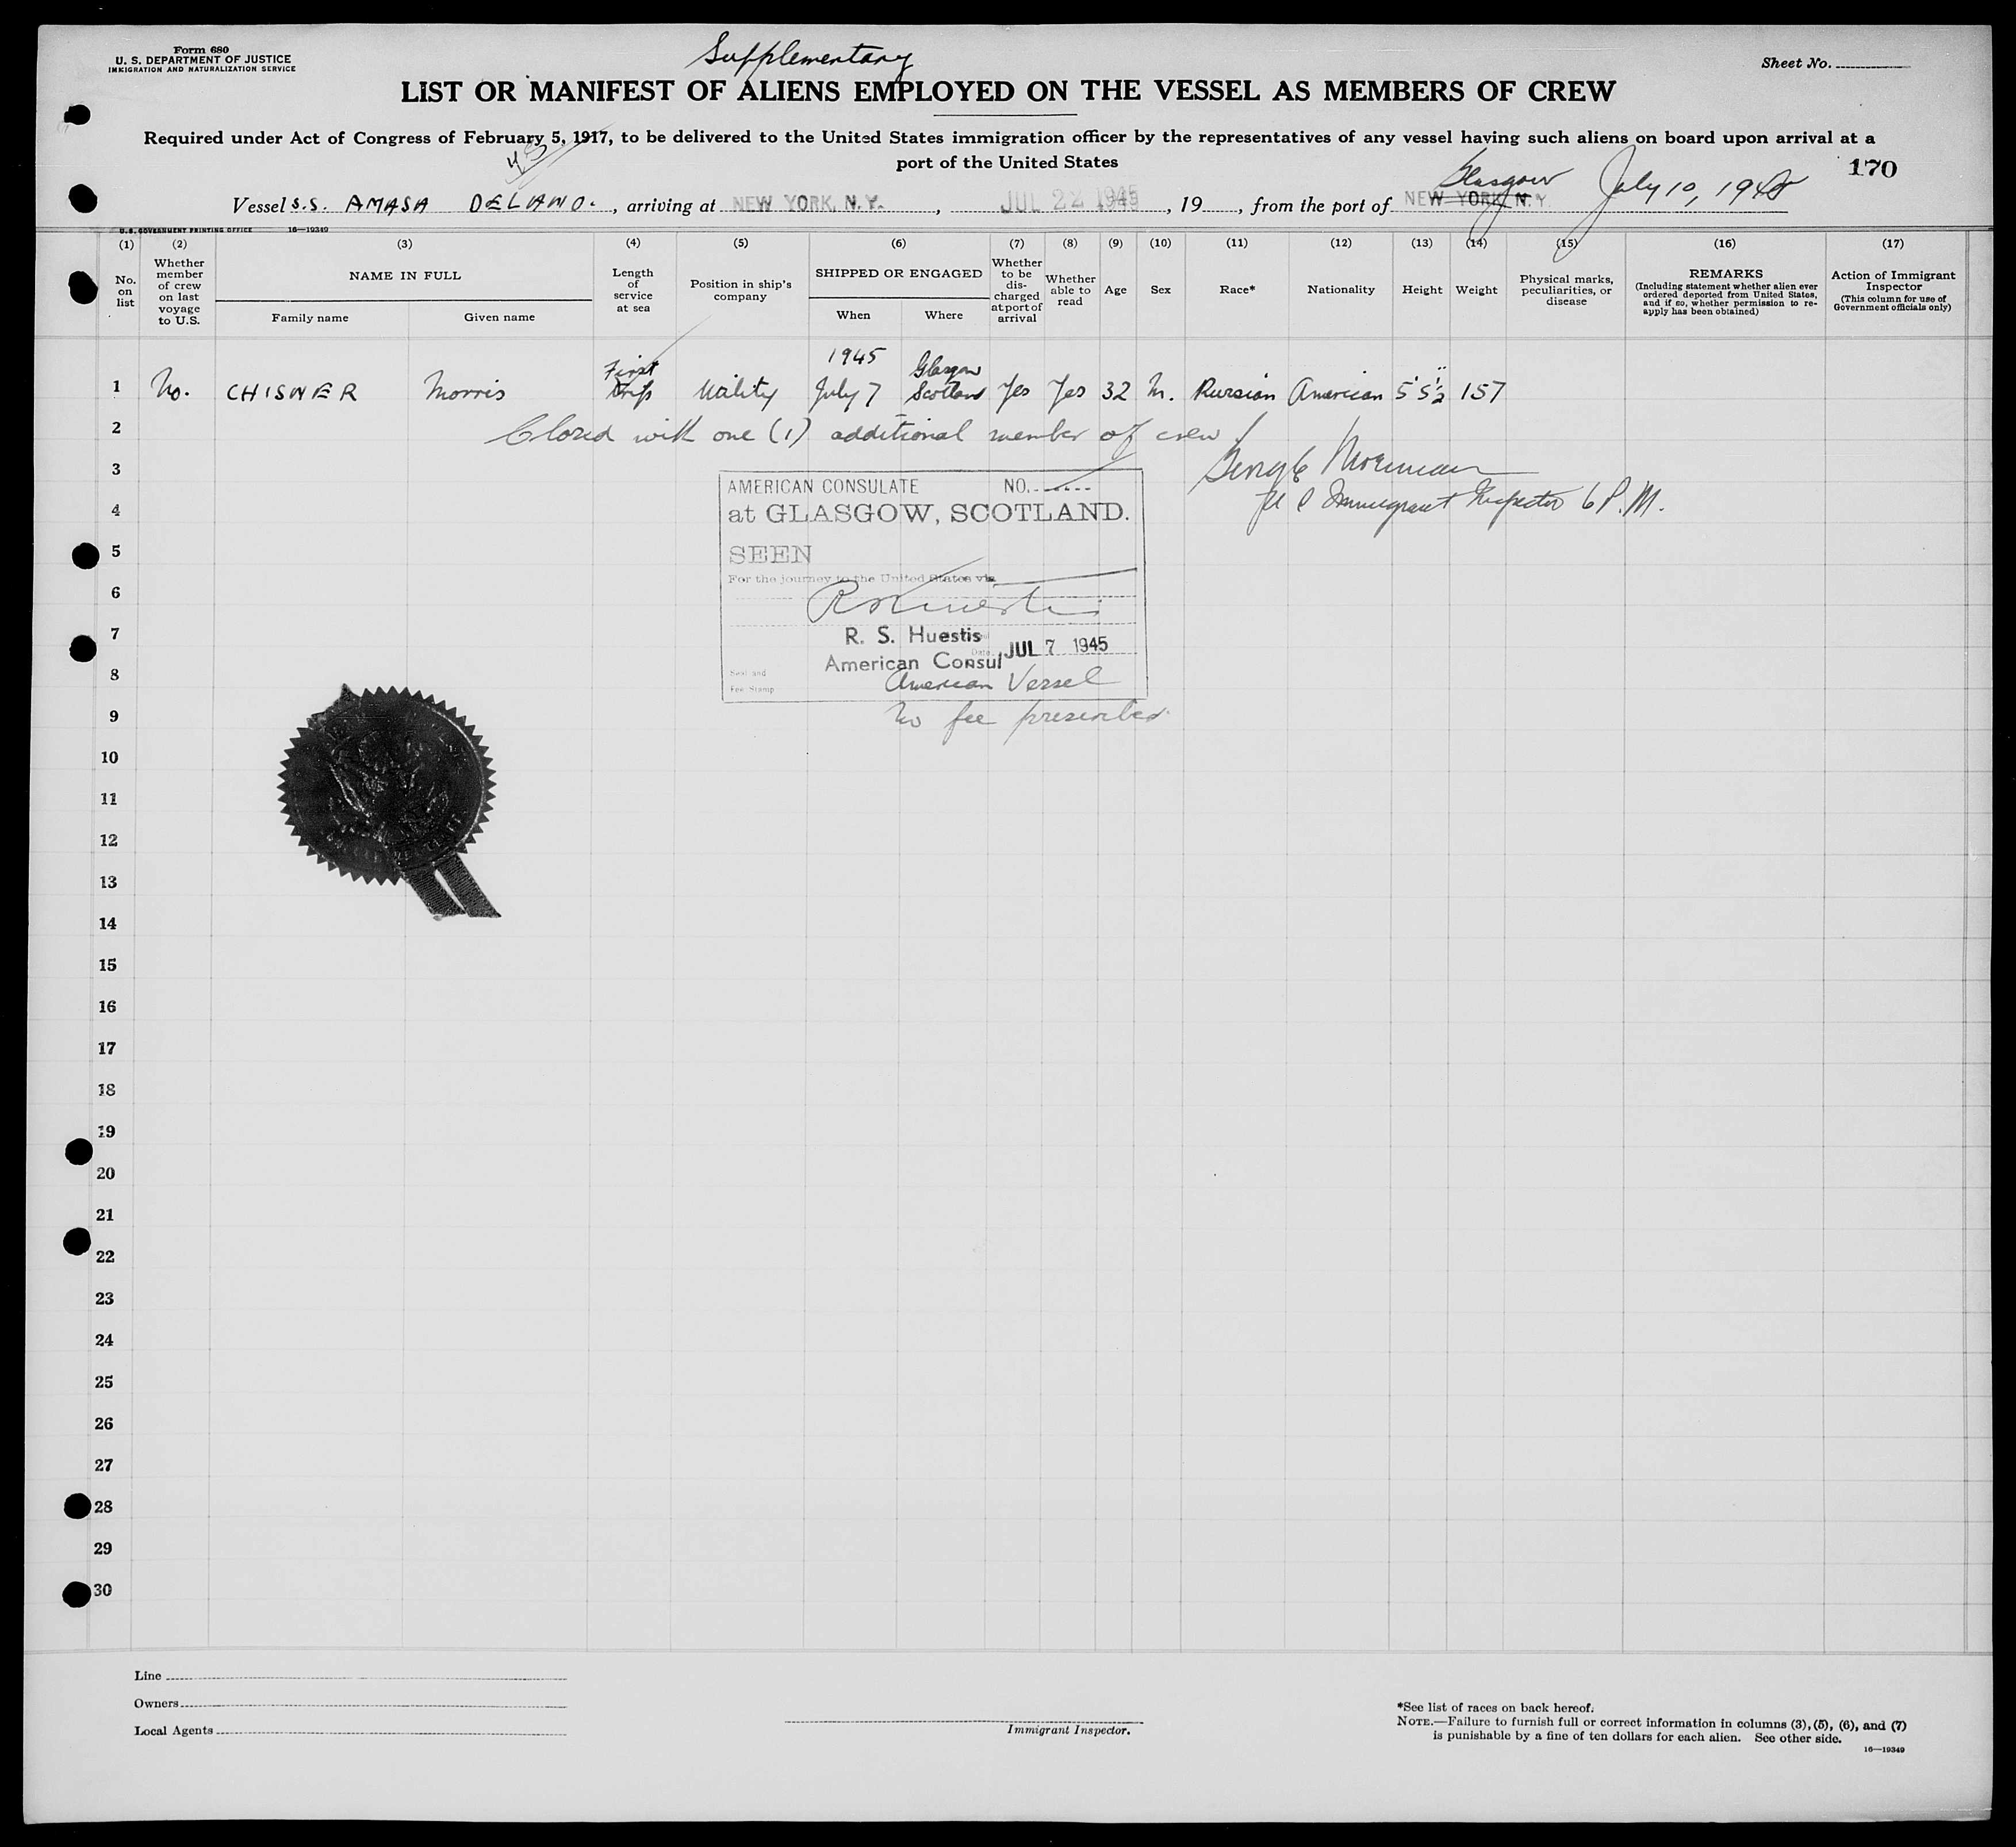 Form 680
U. S. DEPARTMENT OF JUSTICE
IMMIGRATION AND NATURALIZATION SERVICE
Supplementary
Sheet No.
LIST OR MANIFEST OF ALIENS EMPLOYED ON THE VESSEL AS MEMBERS OF CREW
Required under Act of Congress of February 5, 1917, to be delivered to the United States immigration officer by the representatives of any vessel having such aliens on board upon arrival at a
port of the United States
170
Vessel S.S. AMASA DELANO. , arriving at NEW YORK, N.Y. , JUL 22 1945 , 19 , from the port of NEW YORK N.Y. Glasgow July 10, 1945
U.S. GOVERNMENT PRINTING OFFICE 16—19349
(1) (2) (3) (4) (5) (6) (7) (8) (9) (10) (11) (12) (13) (14) (15) (16) (17)
No. on list
Whether member of crew on last voyage to U.S.
NAME IN FULL
Family name
Given name
Length of service at sea
Position in ship's company
SHIPPED OR ENGAGED
When
Where
Whether to be discharged at port of arrival
Whether able to read
Age
Sex
Race*
Nationality
Height
Weight
Physical marks, peculiarities, or disease
REMARKS
(Including statement whether alien ever ordered deported from United States, and if so, whether permission to re-apply has been obtained)
Action of Immigrant Inspector
(This column for use of Government officials only)
1 No. CHISNER Morris First Trip Utility 1945 July 7 Glasgow Scotland Yes Yes 32 M. Russian American 5' 5 1/2" 157
2 Closed with one (1) additional member of crew
3
U S Immigrant Inspector 6 P.M.
4
5
6
7
8
9
10
11
12
13
14
15
16
17
18
19
20
21
22
23
24
25
26
27
28
29
30
AMERICAN CONSULATE NO.
at GLASGOW, SCOTLAND.
SEEN
For the journey to the United States via
R. S. Huestis
American Consul
Date JUL 7 1945
Seal and
Fee Stamp
American Vessel
No fee prescribed
Line
Owners
Local Agents
Immigrant Inspector.
*See list of races on back hereof.
NOTE.—Failure to furnish full or correct information in columns (3), (5), (6), and (7)
is punishable by a fine of ten dollars for each alien. See other side.
16—19349